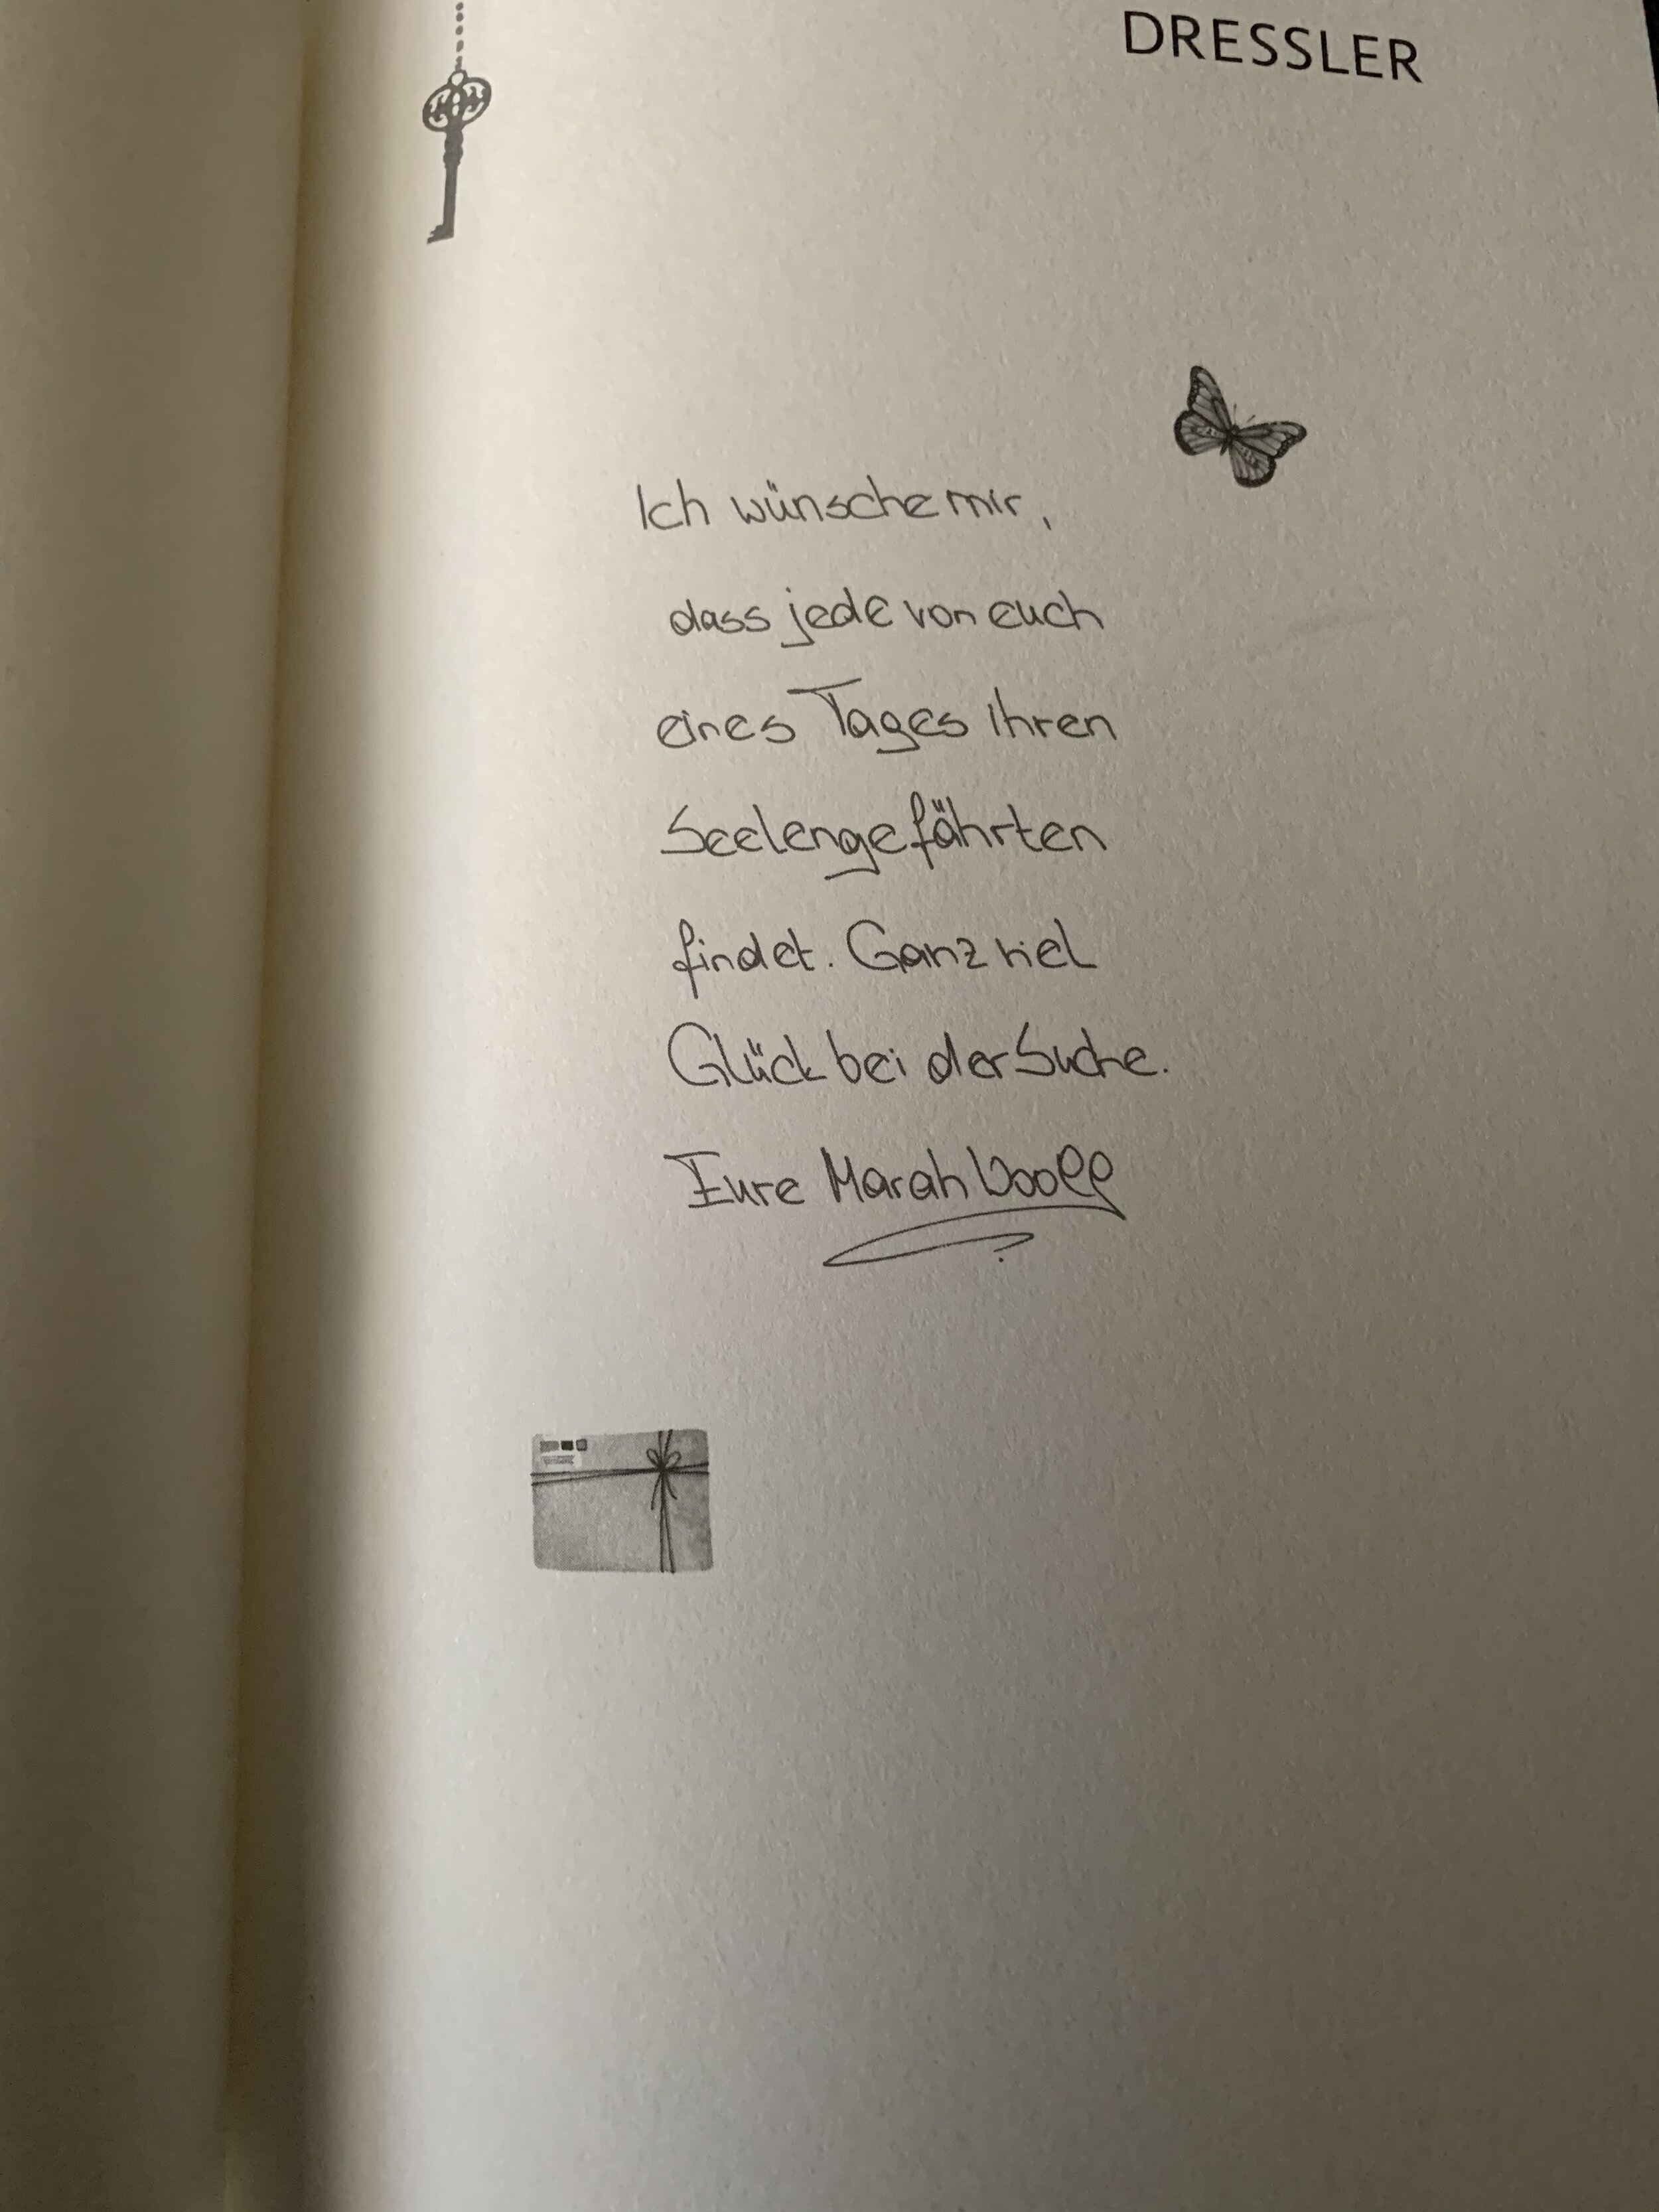 DRESSLER
Ich wünsche mir,
dass jede von euch
eines Tages ihren
Seelengefährten
findet. Ganz viel
Glück bei der Suche.
Eure Marah Woolf